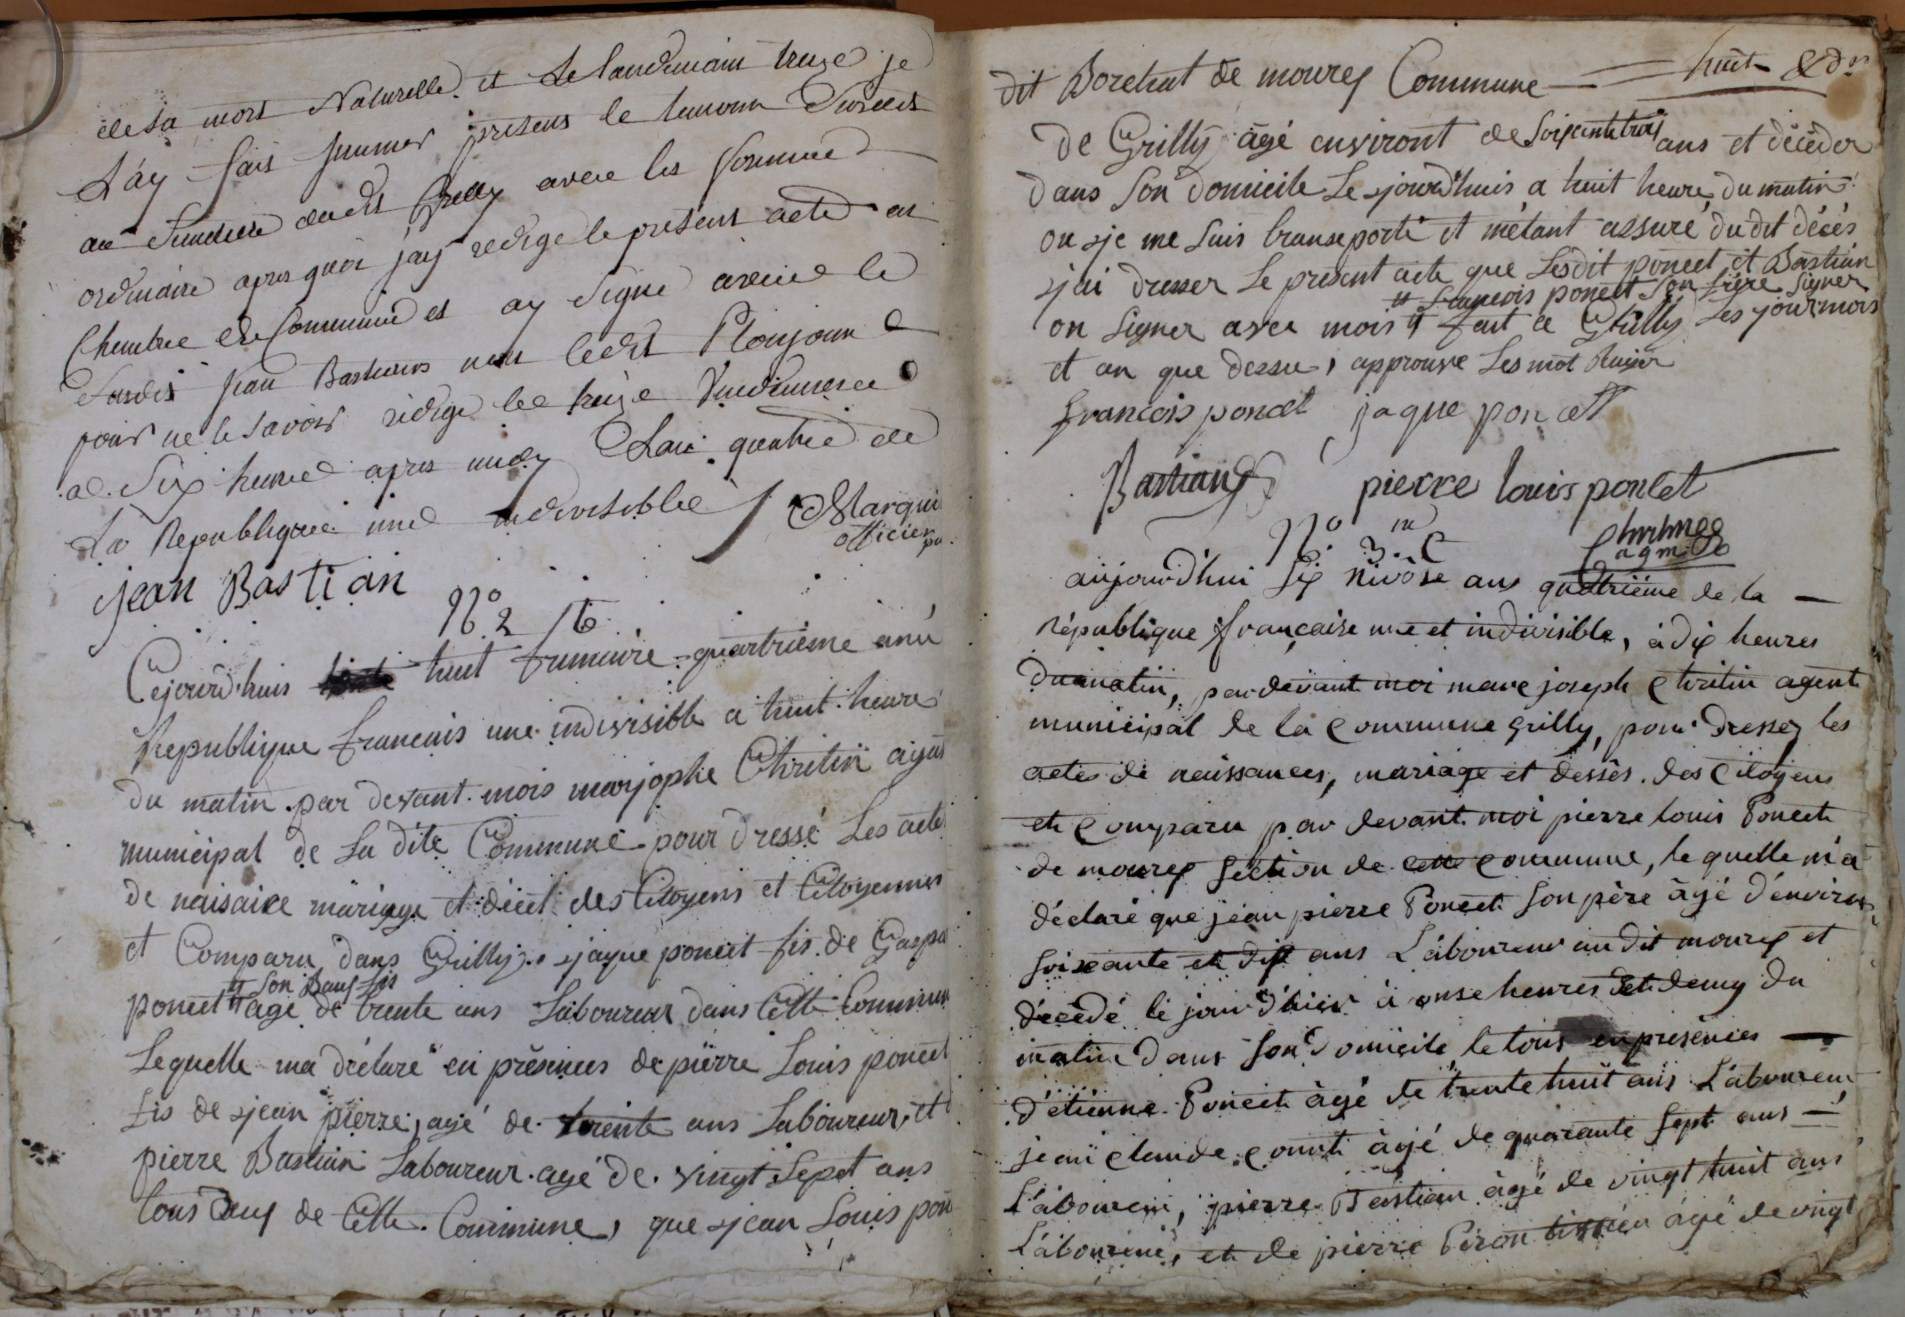 de sa mort Naturelle. et Le landemain treize je
L'ay fais jnumer presens le temoin Surdit
au Simetiere dudit Grilly avec les
ordinaire apres quoi j'ay redige le present acte en
Chambre de Commune et ay Signé avec le
Surdit jean Bastians non ledit Ploujoux
pour ne le savoir redigé le treize Vendemiere
a Six heure apres midy L'an quatre de
La Republique une indivisible / Marquis
officier pu.
jean Bastian
N° 2 /te
Cejourd'huis huit frumaire quartriéme anné
Republique francais une indivisible a huit heure
du matin par devant mois marjophe Chritin agen
municipal de La dite Commune pour dressé Les acte
de naisaice mariage et décét des Citoyens et Citoyennes
et Comparu dans Grilly jaque poncet fis de Gaspa
" Son Bauf fis
poncet " agé de trente ans Laboureur dans Cette Commun
Lequelle ma déclaré en présences de pierre Louis poncet
fis de jean pierre, agé de trente ans Laboureur, et
pierre Bastian Laboureur agé de vingt Sept ans
tous deuf de Cette Commune, que jean Louis pon
huit &
dit Borchat de mourex Commune
de Grilly âgé environt de Soixante troy ans et décéder
dans Son domicile Le jourd'huis a huit heure du matin
ou je me Suis transeporté et métant assuré dudit décés
jai dresser Le present acte que Lesdit poncet et Bastian
" francois poncet Son frère Signer
on Signer avec mois " fait a Grilly Les jour mois
et an que dessu, approuve Les mot Raier
francois poncet jaque poncett
Bastian pierre louis poncet
N° 3. m Chritin
agm.
aujourd'hui six nivôse ans quatriéme de la
république française une et indivisible, à dix heures
du matin, par devant moi marc joseph Chritin agent
municipal de la Commune Grilly, pour dresser les
actes de naissances, mariage et dessès des Citoyens
et Comparu par devant moi pierre louis Poncet
de mourex Section de cette commune, le quelle m'a
déclaré que jean pierre Poncet son père âgé d'environ
soixante et dix ans L'aboureur audit mourex et
décédé le jour d'hier à onse heures et demy du
matin dans son domicile le tous en présences
d'étienne Poncet âgé de trente huit ans L'aboureur
jean claude comt âgé de quarante sept ans
L'aboureur, pierre Bastian âgé de vingt huit ans
L'aboureur, et de pierre Péron âgé de vingt